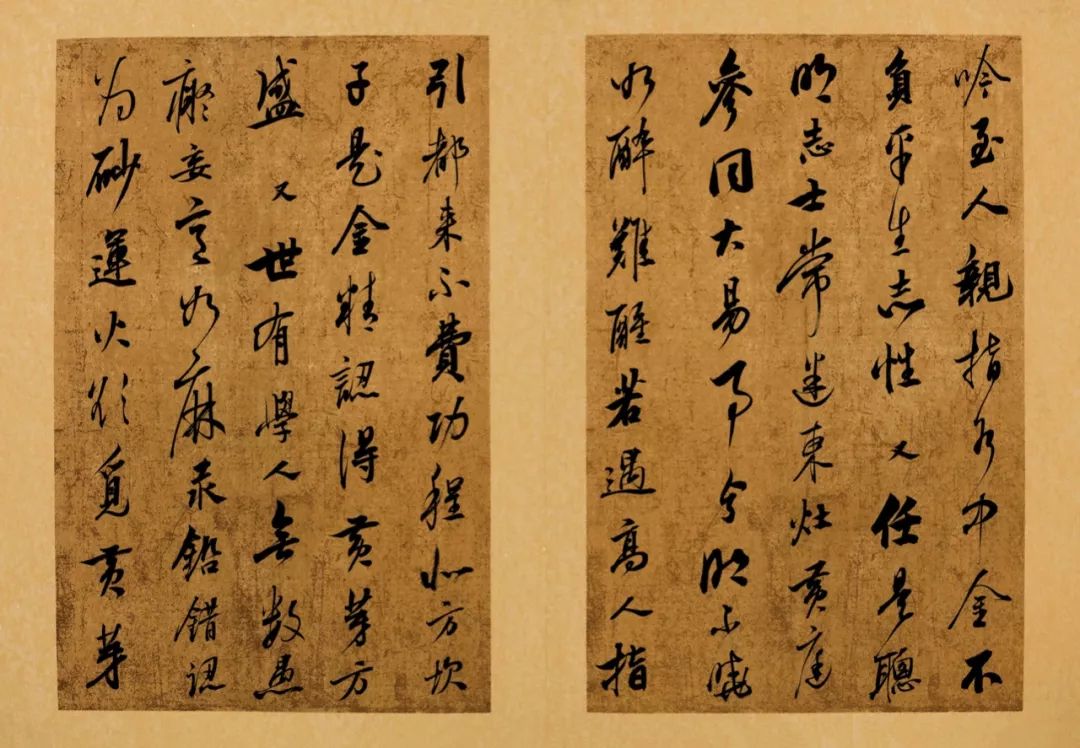 吟至人親指水中金不
負平生志性又任是聰
明志士常迷東灶黃庭
參同大易事分明不曉
如醉難醒若遇高人指
引都來不費功程北方坎
子是金精認得黃芽方
盛又世有學人無數愚
癡妄意如麻汞鉛錯認
为砂運火欲覓黃芽